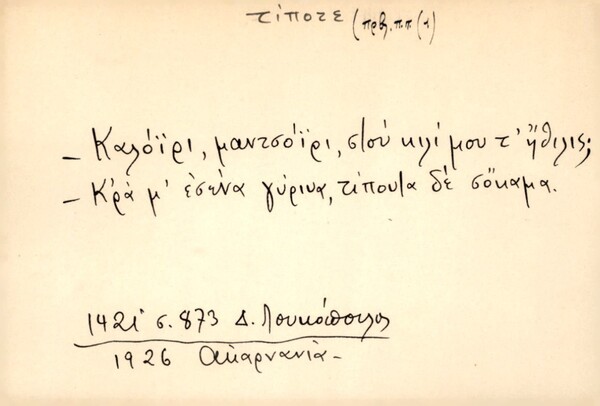 τίποτε (πρβ. π.π. (1)
– Καλόϊρι, μαντσόϊρι, στού κιλί μου τ' ἤθιλις;
– Κ̓ρά μ' ἐσένα γύριυα, τίπουτα δέ σὄκαμα.
1421 σ. 873 Δ. Λουκόπουλος
1926 Ακαρνανία –